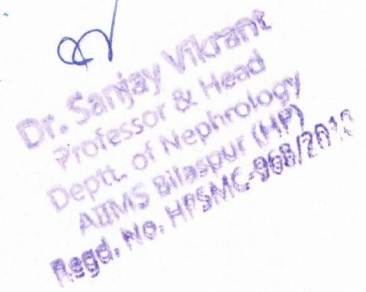 Dr. Sanjay Vikrant
Professor & Head
Deptt. of Nephrology
AIIMS Bilaspur (HP)
Regd. No. HPSMC-968/2013